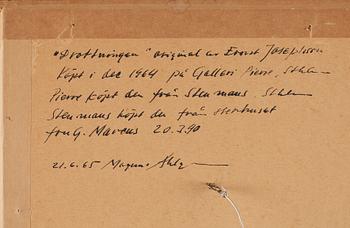 "Drottningen" original av Ernst Josephson
Köpt i dec 1964 på Galleri Pierre, Sthlm
Pierre köpt den från Stenmans, Sthlm
Stenmans köpt den från sterbhuset
fru G. Marcus 20.3.90
21.6.65 Magnus